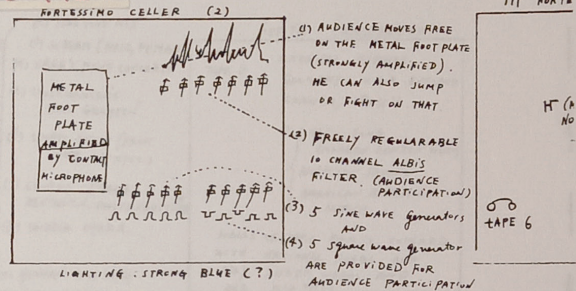 FORTESSIMO CELLER (2)
METAL
FOOT
PLATE
AMPLIFIED
BY CONTACT
MICROPHONE
(1) AUDIENCE MOVES FREE
ON THE METAL FOOT PLATE
(STRONGLY AMPLIFIED).
HE CAN ALSO JUMP
OR FIGHT ON THAT
(2) FREELY REGULARABLE
10 CHANNEL ALBIS
FILTER. (AUDIENCE
PARTICIPATION)
(3) 5 SINE WAVE generators
AND
(4) 5 square wave generator
ARE PROVIDED FOR
AUDIENCE PARTICIPATION
LIGHTING : STRONG BLUE (?)
tAPE 6